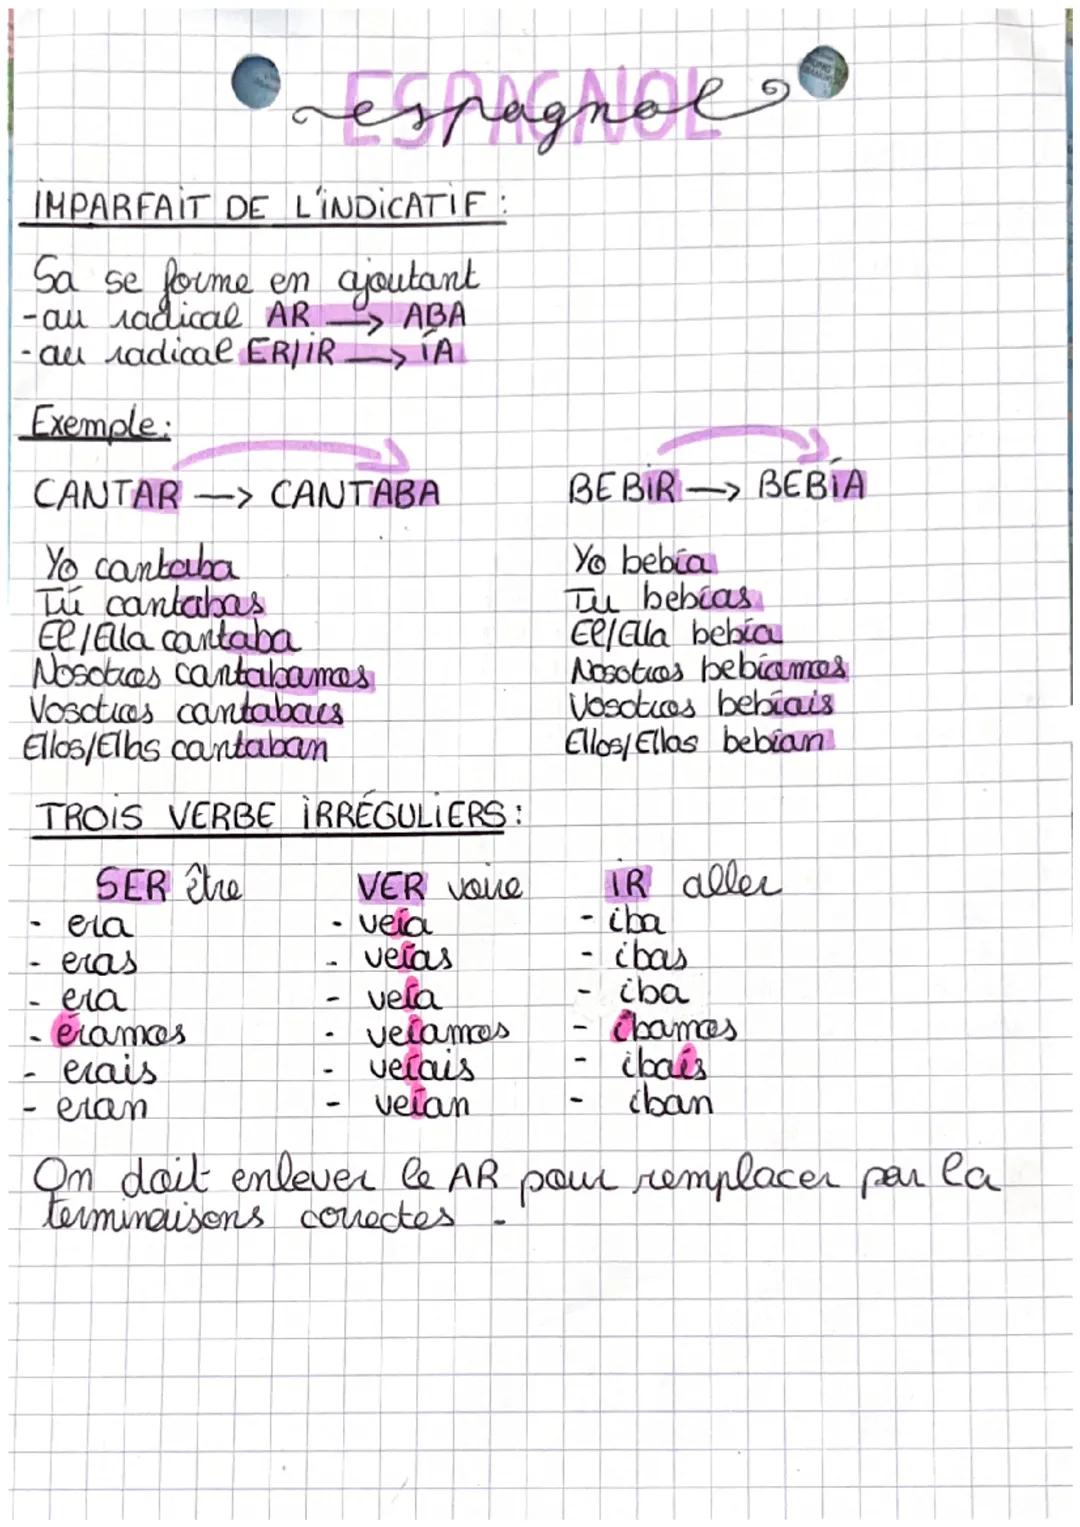 ESPAGNOL
espagnol
IMPARFAIT DE L'INDICATIF :
Sa se forme en ajoutant
-au radical AR → ABA
-au radical ER/IR → ÍA
Exemple :
CANTAR → CANTABA
Yo cantaba
Tú cantabas
El/Ella cantaba
Nosotros cantabamos
Vosotros cantabais
Ellos/Ellas cantaban
BEBIR → BEBÍA
Yo bebía
Tu bebías
El/Ella bebía
Nosotros bebíamos
Vosotros bebíais
Ellos/Ellas bebían
TROIS VERBE IRRÉGULIERS :
SER être
- era
- eras
- era
- éramos
- erais
- eran
VER voire
- veía
- veías
- veía
- veíamos
- veíais
- veían
IR aller
- iba
- ibas
- iba
- íbamos
- ibais
- iban
On doit enlever le AR pour remplacer par la
terminaisons correctes .